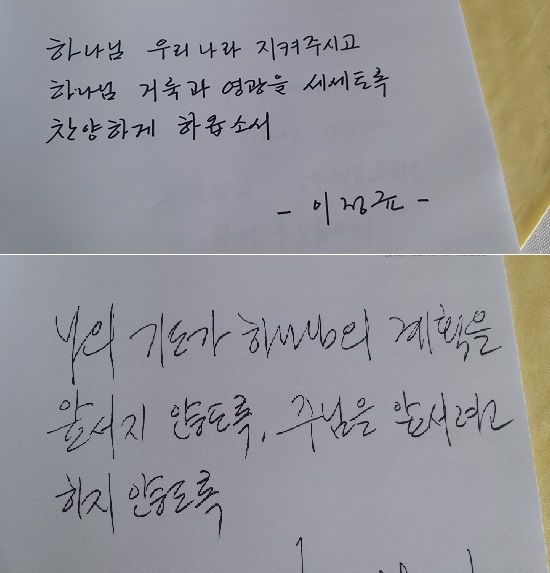 하나님 우리나라 지켜주시고
하나님 거룩과 영광을 세세토록
찬양하게 하옵소서
- 이정규 -
님의 기도가 하나님의 계획을
앞서지 않도록, 주님을 앞서려고
하지 않도록